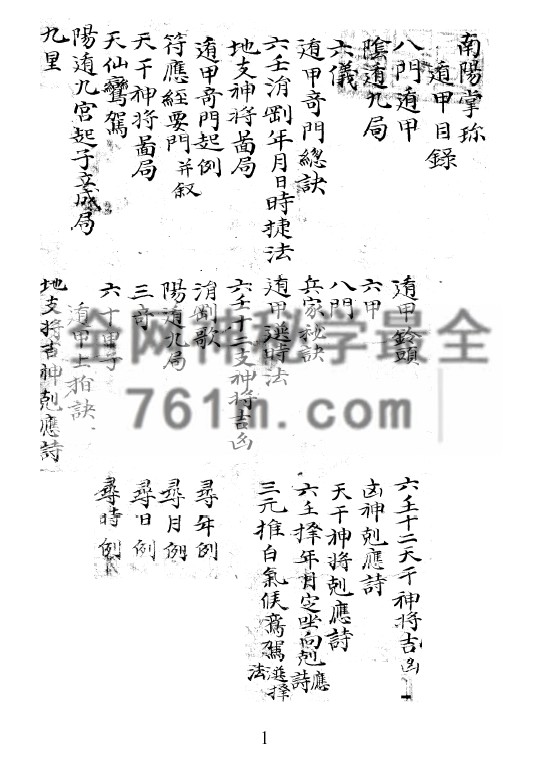 南陽掌珎
遁甲目録
八門遁甲
陰遁九局
六儀
遁甲竒門總訣
六壬湏剛年月日時捷法
地支神将啚局
遁甲竒門起例
符應經要門并叙
天干神将啚局
天仙鸞駕
陽遁九宮起子立成局
九星
遁甲鈐頭
六甲
八門
兵家秘訣
遁甲選時法
六壬十二支神将吉凶
湏剛歌
陽遁九局
三竒
六十甲子
遁甲上拍訣
地支将吉神剋應詩
六壬十二天干神将吉凶
凶神剋應詩
天干神将剋應詩
六壬擇年月定坐向剋應詩
三元推白氣候鸞駕選擇法
尋年例
尋月例
尋日例
尋時例
全网神科学最全
761n.com
1